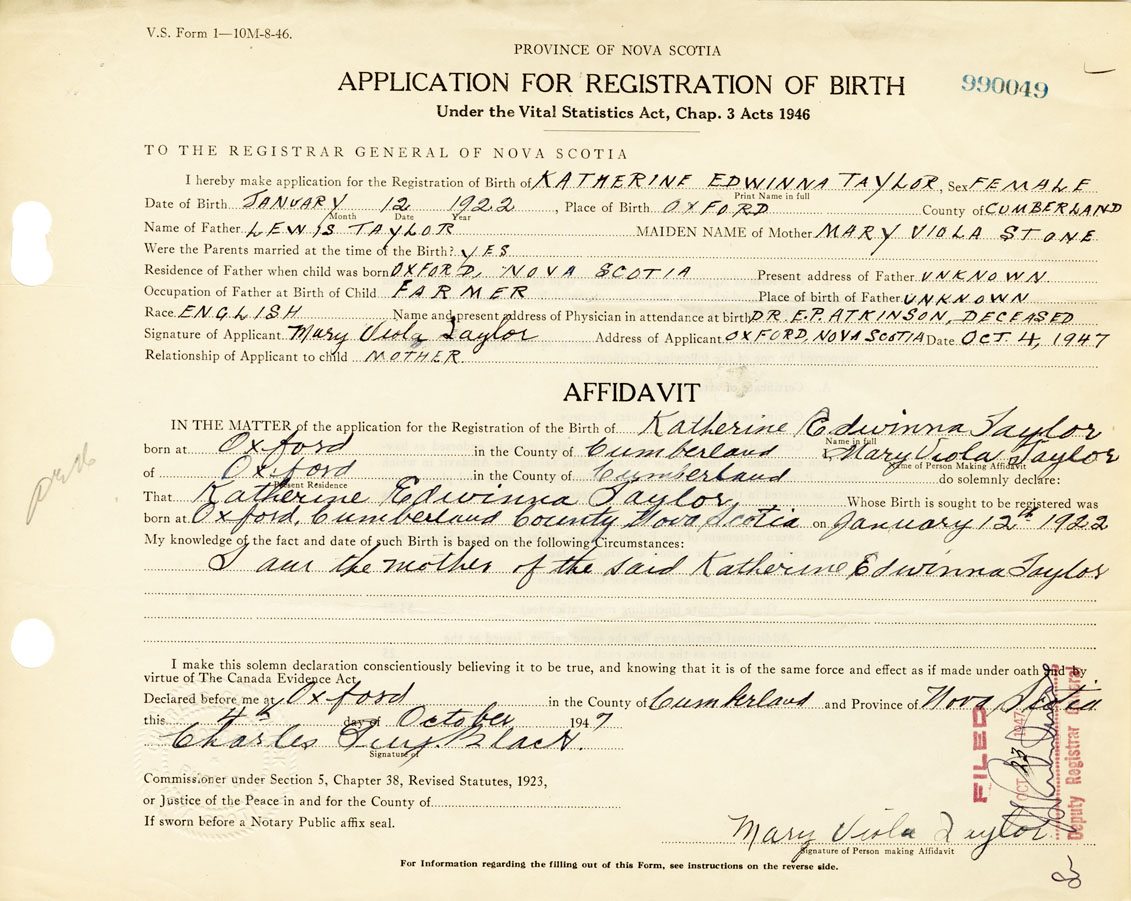 V.S. Form 1—10M-8-46.
PROVINCE OF NOVA SCOTIA
APPLICATION FOR REGISTRATION OF BIRTH
990049
Under the Vital Statistics Act, Chap. 3 Acts 1946
TO THE REGISTRAR GENERAL OF NOVA SCOTIA
I hereby make application for the Registration of Birth of KATHERINE EDWINNA TAYLOR, Sex FEMALE
Print Name in full
Date of Birth JANUARY 12 1922, Place of Birth OXFORD County of CUMBERLAND
Month Date Year
Name of Father LEWIS TAYLOR MAIDEN NAME of Mother MARY VIOLA STONE
Were the Parents married at the time of the Birth? YES
Residence of Father when child was born OXFORD, NOVA SCOTIA Present address of Father UNKNOWN
Occupation of Father at Birth of Child FARMER Place of birth of Father UNKNOWN
Race ENGLISH Name and present address of Physician in attendance at birth DR. E.P. ATKINSON, DECEASED
Signature of Applicant Mary Viola Taylor Address of Applicant OXFORD, NOVA SCOTIA Date OCT. 4, 1947
Relationship of Applicant to child MOTHER
AFFIDAVIT
IN THE MATTER of the application for the Registration of the Birth of Katherine Edwinna Taylor
Name in full
born at Oxford in the County of Cumberland I, Mary Viola Taylor
Name of Person Making Affidavit
of Oxford in the County of Cumberland do solemnly declare:
Present Residence
That Katherine Edwinna Taylor Whose Birth is sought to be registered was
born at Oxford, Cumberland County Nova Scotia on January 12th 1922
My knowledge of the fact and date of such Birth is based on the following Circumstances:
I am the mother of the said Katherine Edwinna Taylor
I make this solemn declaration conscientiously believing it to be true, and knowing that it is of the same force and effect as if made under oath and by
virtue of The Canada Evidence Act.
Declared before me at Oxford in the County of Cumberland and Province of Nova Scotia
this 4th day of October 1947
Charles Black
Signature of
FILED
OCT 23 1947
Deputy Registrar General
Commissioner under Section 5, Chapter 38, Revised Statutes, 1923,
or Justice of the Peace in and for the County of
If sworn before a Notary Public affix seal.
Mary Viola Taylor
Signature of Person making Affidavit
For Information regarding the filling out of this Form, see instructions on the reverse side.